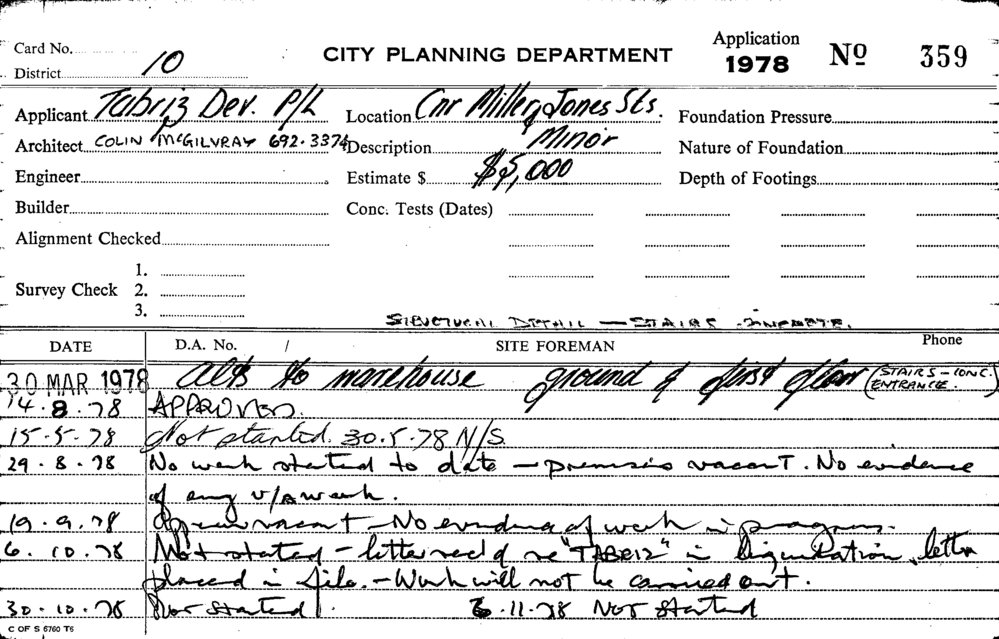 Card No.
District 10
CITY PLANNING DEPARTMENT
Application 1978 Nº 359
Applicant Tabriz Dev. P/L
Location Cnr Miller & Jones Sts.
Foundation Pressure
Architect COLIN McGILVRAY 692.3374
Description Minor
Nature of Foundation
Engineer
Estimate $ $5,000
Depth of Footings
Builder
Conc. Tests (Dates)
Alignment Checked
Survey Check 1.
2.
3.
STRUCTURAL DETAIL — STAIRS
DATE D.A. No. / SITE FOREMAN Phone
30 MAR 1978 Alts to warehouse ground & first floor (STAIRS - CONC. ENTRANCE.)
14.8.78 APPROVED.
15-5-78 Not started. 30.5.78 N/S
29.8.78 No work started to date — premises vacant. No evidence
of any work.
19.9.78 vacant — No evidence of work in progress.
6.10.78 Not started — letter rec'd re "TABRIZ" in liquidation, letter
placed in file. — Work will not be carried out.
30.10.78 Not started. 6.11.78 Not Started
C OF S 6760 T6